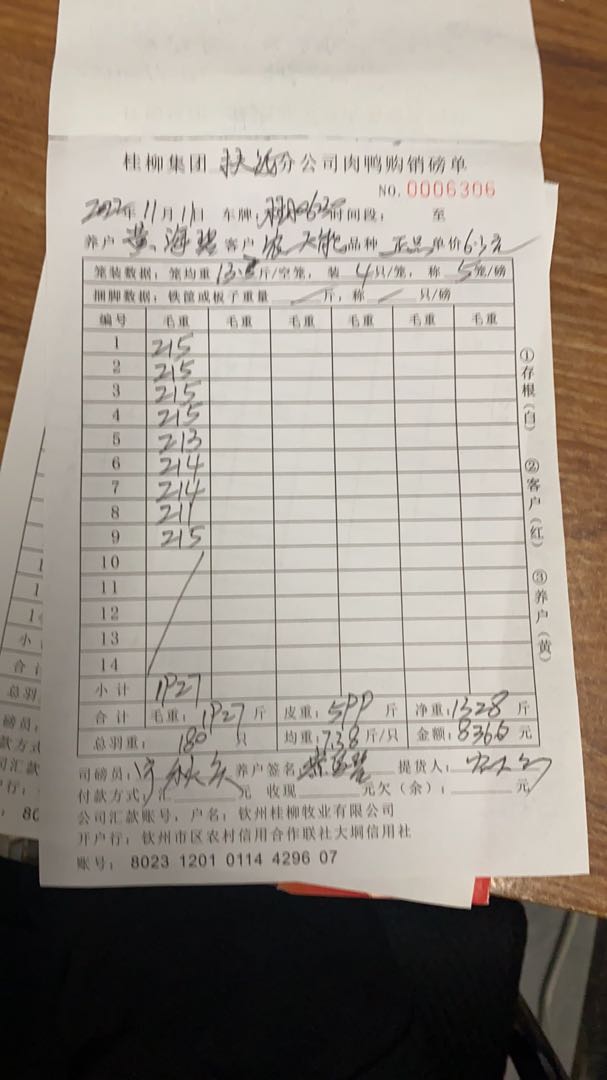 桂柳集团 扶绥分公司肉鸭购销磅单
NO. 0006306
年11月11日 车牌: 时间段: 至
养户 黄海 客户 农天能 品种 正品 单价6.3元
笼装数据: 笼均重 13.3斤/空笼, 装 4只/笼, 称 5笼/磅
捆脚数据: 铁筐或板子重量 / 斤, 称 / 只/磅
编号 毛重 毛重 毛重 毛重 毛重 毛重
1 215
2 215
3 215
4 215
5 213
6 214
7 214
8 211
9 215
10
11
12
13
14
小计 1927
合计 毛重: 1927 斤 皮重: 599 斤 净重: 1328 斤
总羽重: 180 只 均重: 7.38 斤/只 金额: 8366 元
司磅员: 养户签名: 提货人:
付款方式: 汇 元 收现 元欠(余): 元
公司汇款账号, 户名: 钦州桂柳牧业有限公司
开户行: 钦州市区农村信用合作联社大垌信用社
账号: 8023 1201 0114 4296 07
①存根(白) ②客户(红) ③养户(黄)